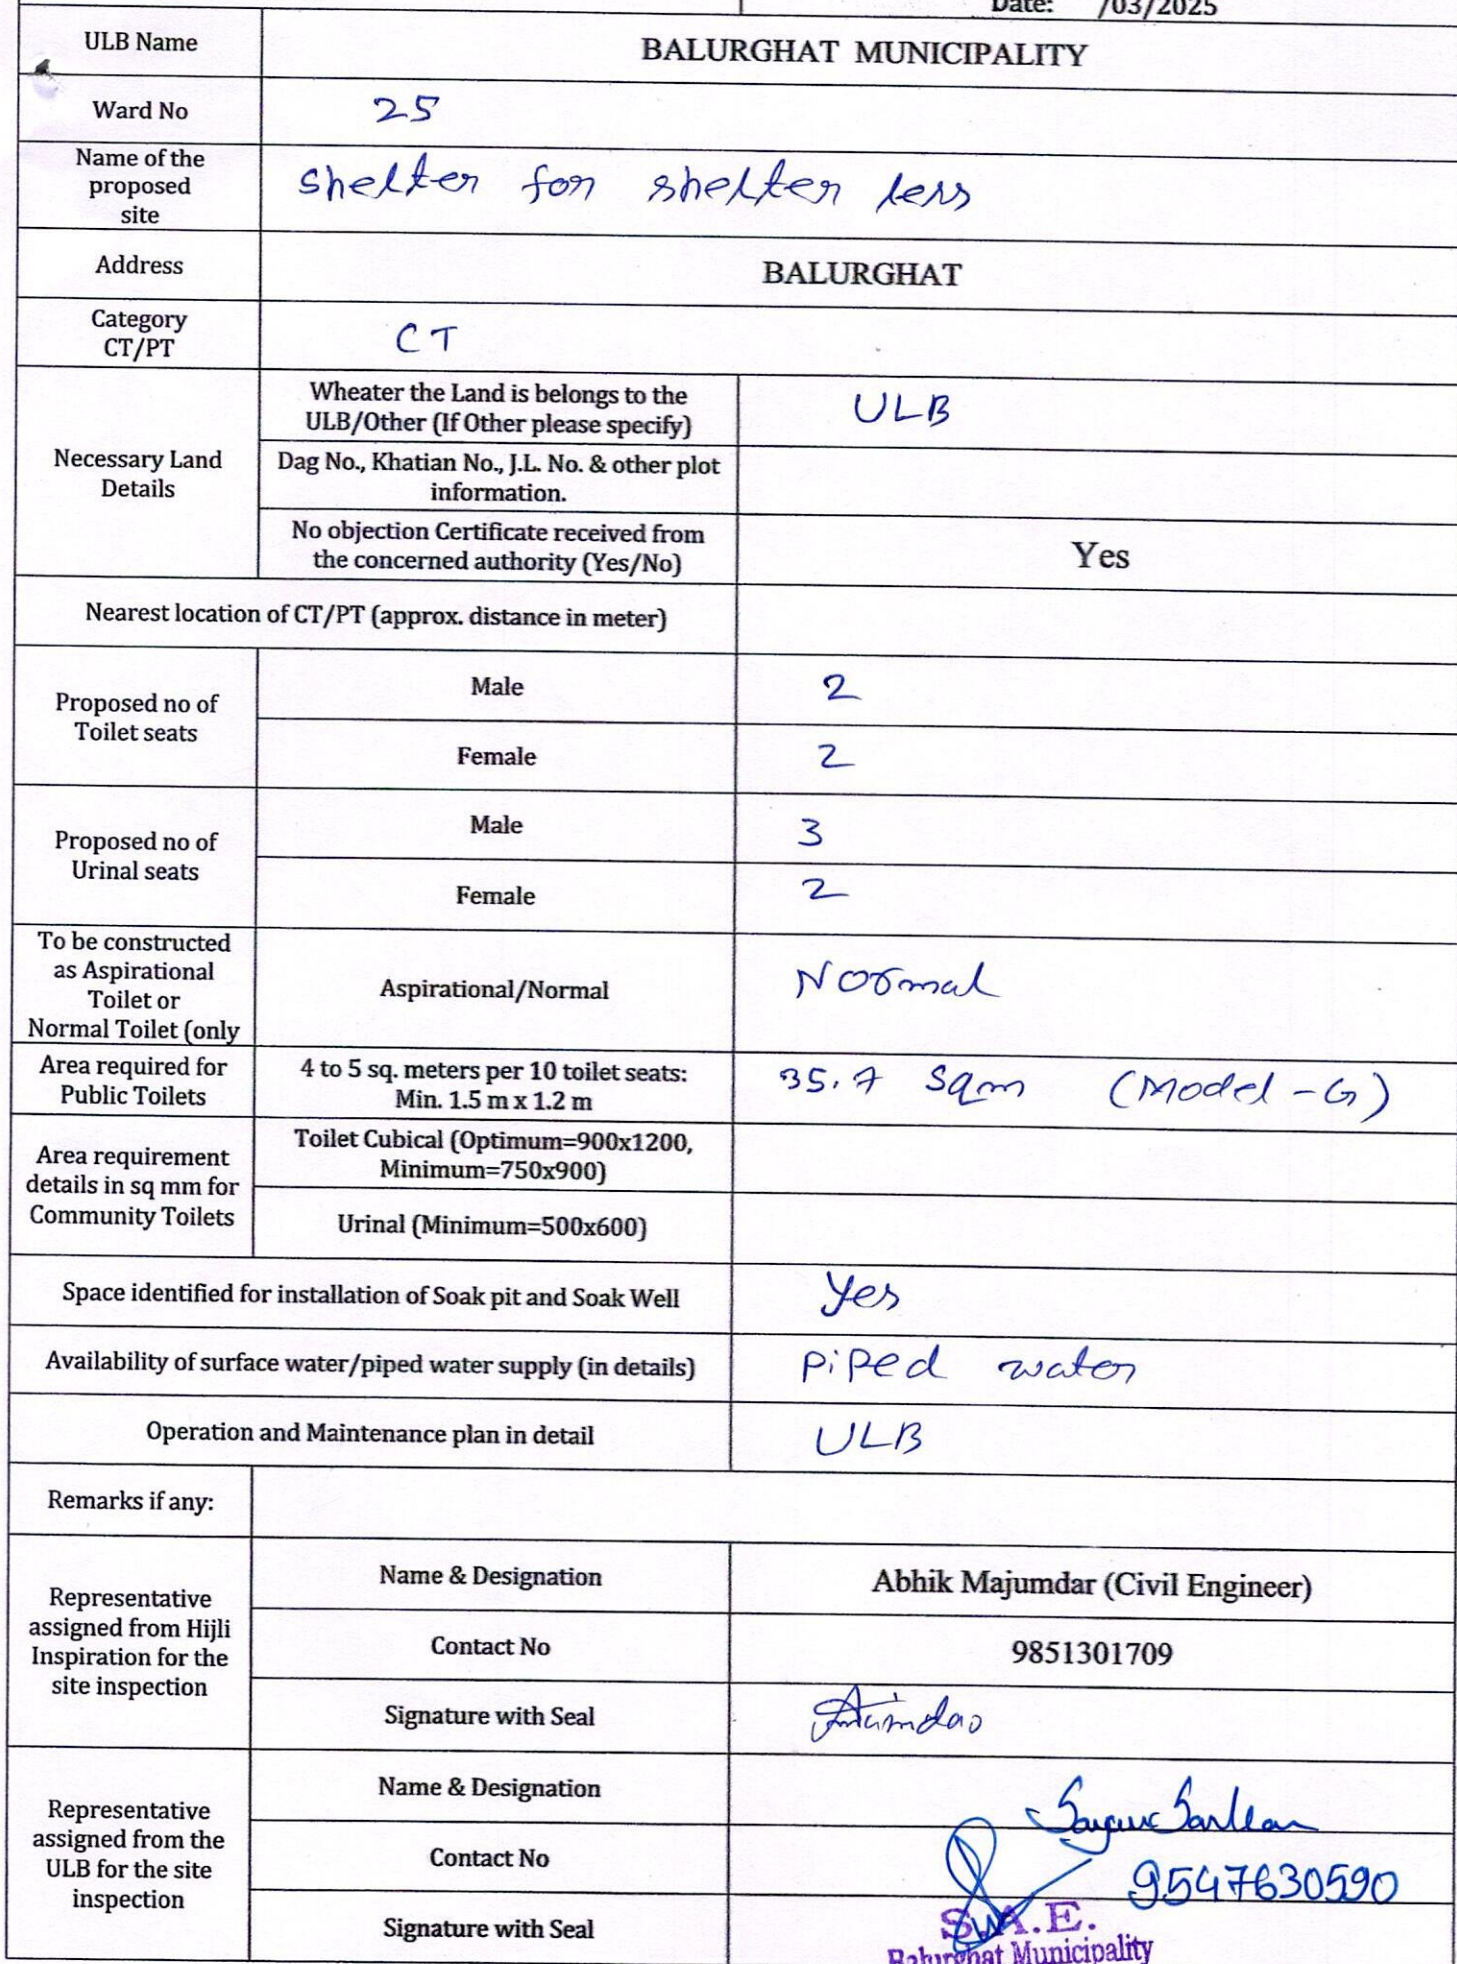 Date: /03/2025
ULB Name
BALURGHAT MUNICIPALITY
Ward No
25
Name of the
proposed
site
shelter for shelter less
Address
BALURGHAT
Category
CT/PT
CT
Necessary Land
Details
Wheater the Land is belongs to the
ULB/Other (If Other please specify)
ULB
Dag No., Khatian No., J.L. No. & other plot
information.
No objection Certificate received from
the concerned authority (Yes/No)
Yes
Nearest location of CT/PT (approx. distance in meter)
Proposed no of
Toilet seats
Male
2
Female
2
Proposed no of
Urinal seats
Male
3
Female
2
To be constructed
as Aspirational
Toilet or
Normal Toilet (only
Aspirational/Normal
Normal
Area required for
Public Toilets
4 to 5 sq. meters per 10 toilet seats:
Min. 1.5 m x 1.2 m
35.7 sqm (Model-G)
Area requirement
details in sq mm for
Community Toilets
Toilet Cubical (Optimum=900x1200,
Minimum=750x900)
Urinal (Minimum=500x600)
Space identified for installation of Soak pit and Soak Well
Yes
Availability of surface water/piped water supply (in details)
Piped water
Operation and Maintenance plan in detail
ULB
Remarks if any:
Representative
assigned from Hijli
Inspiration for the
site inspection
Name & Designation
Abhik Majumdar (Civil Engineer)
Contact No
9851301709
Signature with Seal
Representative
assigned from the
ULB for the site
inspection
Name & Designation
Contact No
9547630590
Signature with Seal
S.A.E.
Balurghat Municipality